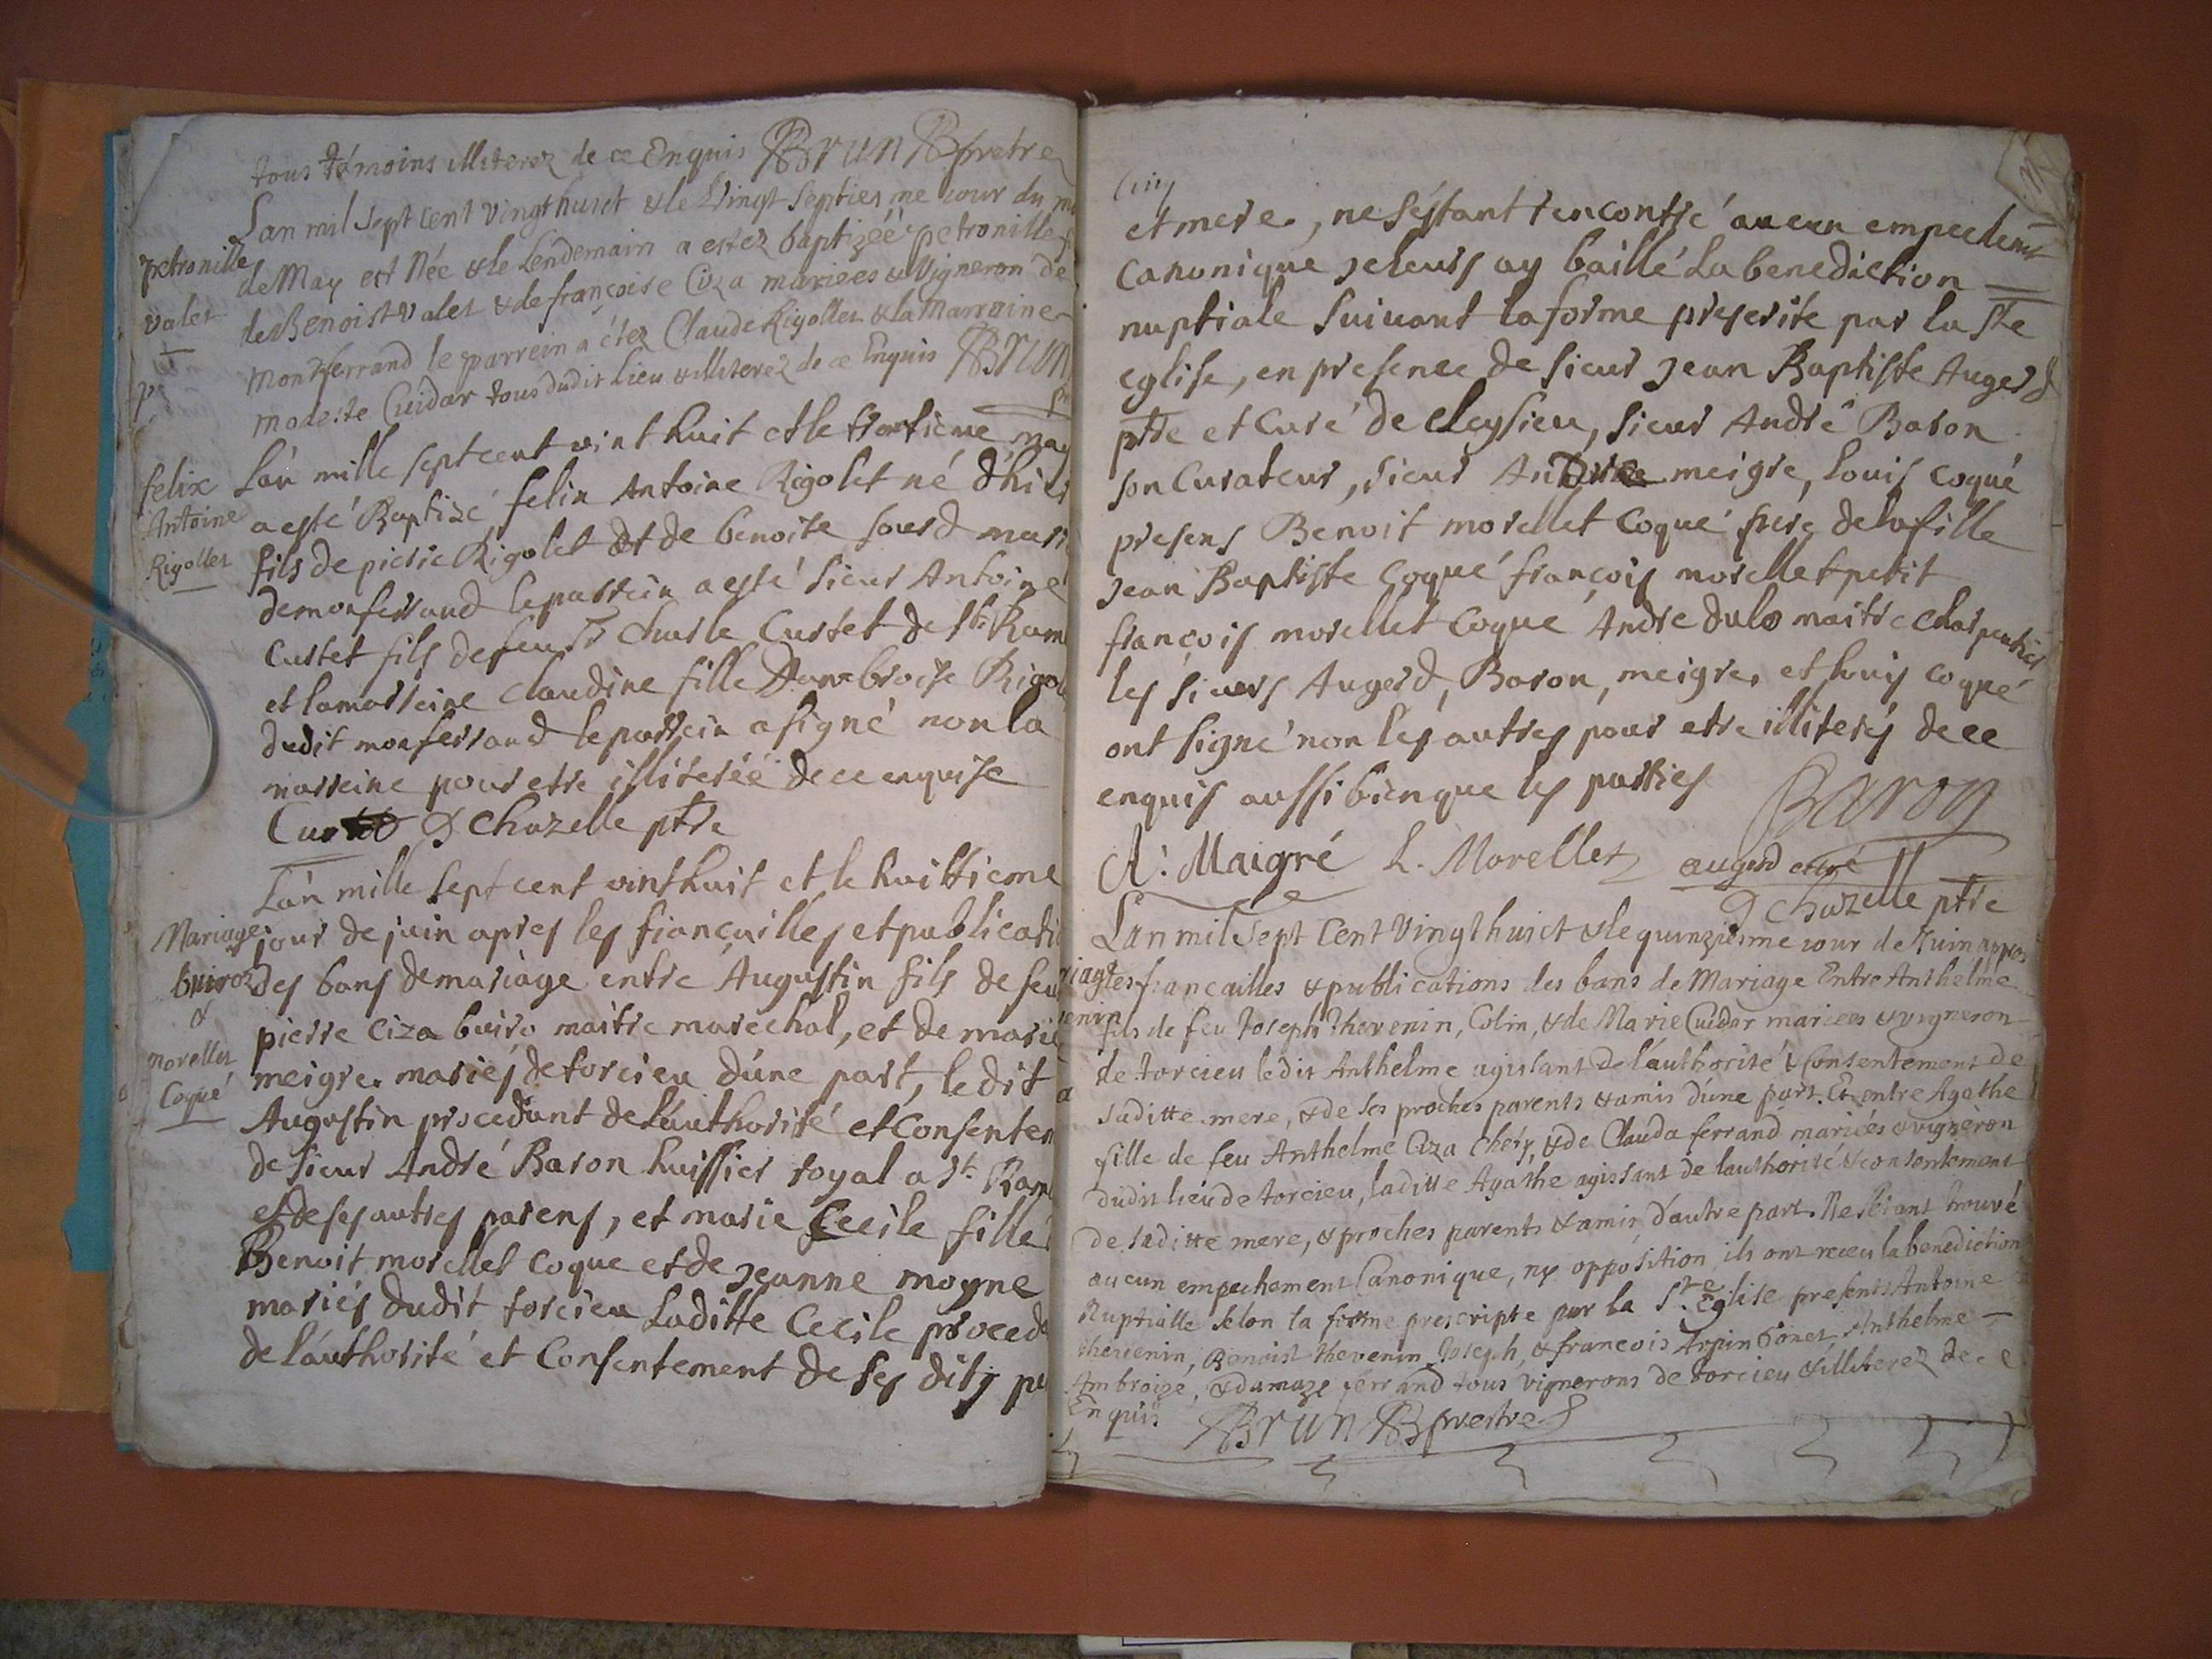 tous témoins illiterez de ce Enquis Brun pretre
Lan mil sept cent vingt huict & le vingt septiesme jour du
petronille
valet
de May est Née & le Lendemain a estéz baptizéé petronille
de Benoist valet & de françoise Ciza mariees & Vigneron de
Montferrand le parrein a étéz Claude Rigollet & la Marraine
modeste Cuidar tous dudit lieu & illiteréz de ce Enquis Brun
felix
Antoine
Rigollet
Lán mille sept cent vint huit et le trontieme may
a esté Baptisé felix Antoine Rigolet né d'hier
fils de pierre Rigolet et de benoite sourd
de monferrand le parrein a esté sieur Antoine
Custet fils de feu Sr Charle Custet de St
et la marreine Claudine fille Dambroise
dudit monferrand le parrein a signé non la
marreine pour etre illiterée de ce enquise
D Chazelle ptre
Mariage
buiroz
&
morellet
Coqué
Lán mille sept cent vint huit et le huittieme
jour de juin apres les fiançailles et
des bans de mariage entre Augustin fils de feu
pierre Ciza buiro maitre marechal, et de marie
meigre mariés de torcieu dúne part, le dit
Augustin procedant de Láuthorité et
de sieur André Baron huissier royal a St.
et de ses autres parens, et marie Cecile fille
Benoit morellet coque et de jeanne moyne
mariés dudit torcieu Laditte Cecile
de láuthorité et Consentement de ses dits
et mere, ne séstant rencontré aucun
Canonique je leurs ay baillé la benediction
nuptiale suivant la forme prescrite par la Ste
eglise, en presence de sieur jean Baptiste Augerd
ptre et Curé de Cleysieu, sieur André Baron
son Curateur, sieur Antoine meigre, Louis coqué
presens Benoit morellet Coqué frere de la fille
jean Baptiste Coqué françois morellet petit
françois morellet Coqué Andre dulo maitre Charpentier
les sieurs Augerd, Baron, meigre, et Louis coqué
ont signé non les autres pour etre illiterés de ce
enquis aussi bien que les parties
Baron
A. Maigré L. Morellet augerd curé
D Chazelle ptre
Lan mil sept Cent Vingt huict & le quinziesme jour de Juin
les fiançailles & publications des bans de Mariage Entre Anthelme
fils de feu Joseph Thevenin, Colin, & de Marie Cuidar mariees & vigneron
de torcieu ledit Anthelme agissant de láuthorité & Consentement de
saditte mere, & de ses proches parents & amis dúne part. Et entre Agathe
fille de feu Anthelme Ciza & de Clauda ferrand mariés & vigneron
dudit lieu de torcieu, laditte Agathe agissant de lauthorité & consentement
de saditte mere, & proches parents & amis, d'autre part. Ne sétant trouvé
aucun empechement Canonique, ny opposition ils ont receu la benediction
Nuptialle selon la forme prescripte par la Ste Eglise presents Antoine
thevenin, Benoist thevenin Joseph, & francois Arpin Anthelme
Ambroize, & damaze ferrand tous vignerons de torcieu & illiterez de ce
Enquis Brun prestre